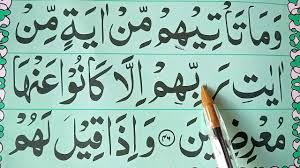 وَمَا تَاْتِيْهِمْ مِّنْ اٰيَةٍ مِّنْ
اٰيٰتِ رَبِّهِمْ اِلَّا كَانُوْا عَنْهَا
مُعْرِضِيْنَ ﴿۴۶﴾ وَاِذَا قِيْلَ لَهُمُ